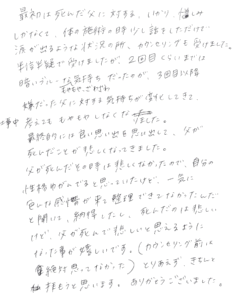 最初は死んだ父に対する、いかり、憎しみ
しかなくて、体の施術の時少し話をしただけで
涙が出るような状況の所、カウンセリングを受けました。
生活音疑で受けましたが、2回目くらいまでは
暗いブルーな気持ちだったのが、3回目以降
嫌だった父に対する気持ちが消化してきて、
考えてもむかむかしなくなりました。
最終的には良い思い出を思い出して、父が
死んだことが悲しくなってきました。
父が死んだその時は悲しくなかったので、自分の
性格ゆがんでると思っていたけど、一気に
色んな感情が来て整理できてなかったんだ
と聞いて、納得したし、死んだのは悲しい
けど、父が死んで悲しいと思えるように
なった事が嬉しいです。(カウンセリング前は
絶対思ってなかった)とりあえず、きちんと
拝もうと思います。ありがとうございました。